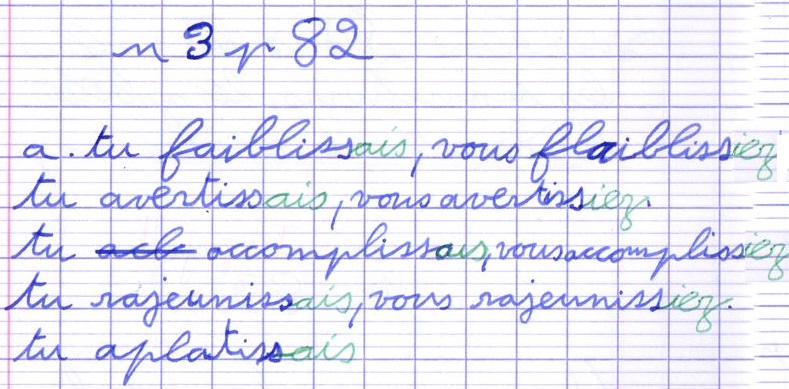 n 3 p 82
a. tu faiblissais, vous flaiblissiez
tu avertissais, vous avertissiez.
tu acb accomplissais, vous accomplissiez
tu rajeunissais, vous rajeunissiez.
tu aplatissais